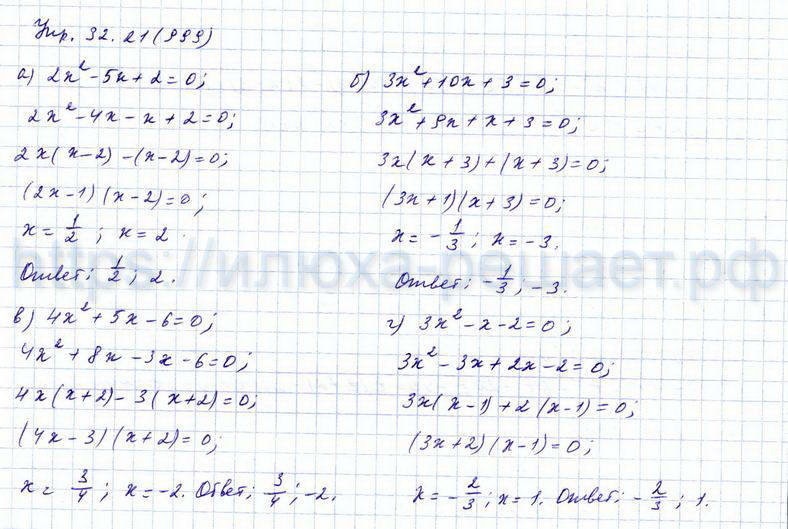 Упр. 32.21(999)
а) 2x² - 5x + 2 = 0;
2x² - 4x - x + 2 = 0;
2x(x - 2) - (x - 2) = 0;
(2x - 1)(x - 2) = 0;
x = 1/2; x = 2.
Ответ: 1/2; 2.
б) 3x² + 10x + 3 = 0;
3x² + 9x + x + 3 = 0;
3x(x + 3) + (x + 3) = 0;
(3x + 1)(x + 3) = 0;
x = -1/3; x = -3.
Ответ: -1/3; -3.
https://илюха-решает.рф
в) 4x² + 5x - 6 = 0;
4x² + 8x - 3x - 6 = 0;
4x(x + 2) - 3(x + 2) = 0;
(4x - 3)(x + 2) = 0;
x = 3/4; x = -2. Ответ: 3/4; -2.
г) 3x² - x - 2 = 0;
3x² - 3x + 2x - 2 = 0;
3x(x - 1) + 2(x - 1) = 0;
(3x + 2)(x - 1) = 0;
x = -2/3; x = 1. Ответ: -2/3; 1.